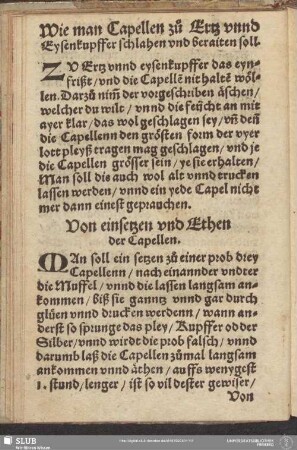 Wie man Capellen zů Ertz vnnd
Eysenkupffer schlahen vnd beraiten soll.
ZV Ertz vnnd eysenkupffer das eyn-
frißt / vnd die Capellē nit haltē wöl-
len. Darzů nim̄ der vorgeschriben äschen /
welcher du wilt / vnnd die feücht an mit
ayer klar / das wol geschlagen sey / vn̄ den̄
die Capellenn den grösten form der vyer
lott pleyß tragen mag geschlagen / vnd je
die Capellen grösser sein / ye sie erhalten /
Man soll die auch wol alt vnnd trucken
lassen werden / vnnd ein yede Capel nicht
mer dann einest geprauchen.
Von einsetzen vnd Ethen
der Capellen.
MAn soll ein setzen zů einer prob drey
Capellenn / nach einannder vndter
die Muffel / vnnd die lassen langsam an-
kommen / biß sie ganntz vnnd gar durch
glüen vnnd drucken werdenn / wann an-
derst so sprunge das pley / Kupffer odder
Silber / vnnd wirdt die prob falsch / vnnd
darumb laß die Capellen zůmal langsam
ankommen vnnd äthen / auffs wenygest
1. stund / lenger / ist so vil dester gewiser /
Von
SLUB
Wir führen Wissen.